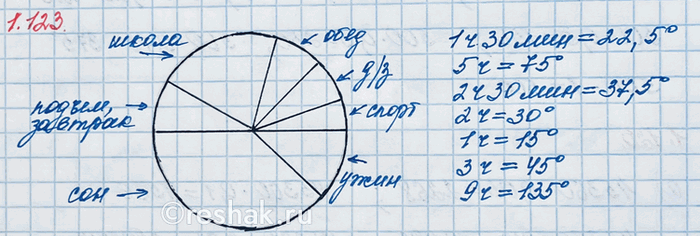 1.123.
школа
обед
д/з
спорт
подъем,
завтрак
ужин
сон
1ч 30мин = 22,5°
5ч = 75°
2ч 30мин = 37,5°
2ч = 30°
1ч = 15°
3ч = 45°
9ч = 135°
©reshak.ru